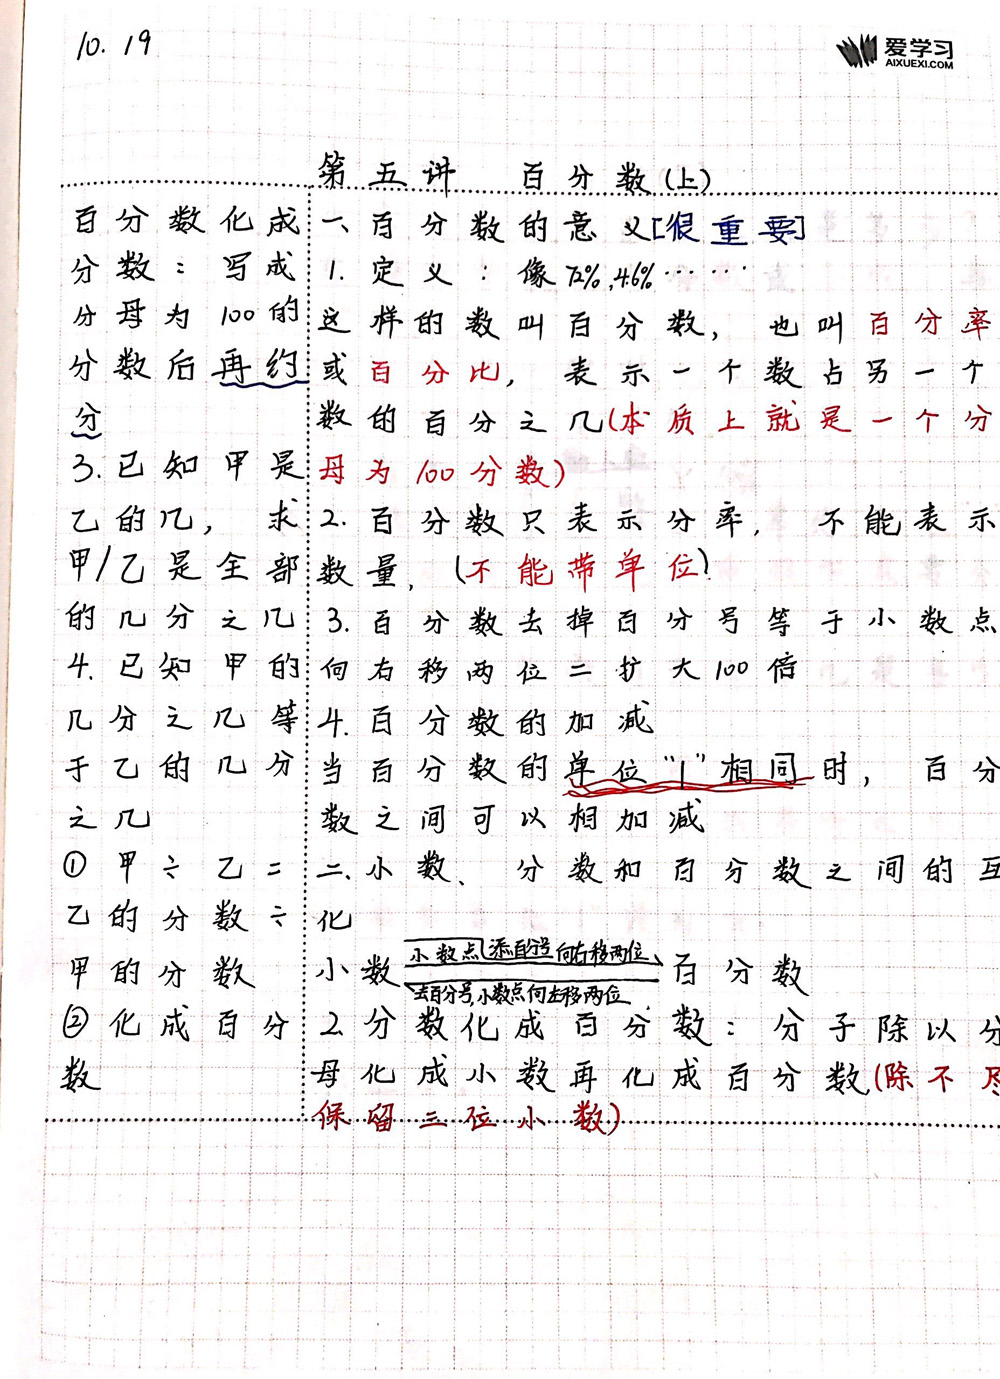 10.19
爱学习
AIXUEXI.COM
第五讲 百分数(上)
百分数化成
分数：写成
分母为100的
分数后再约
分
3.已知甲是
乙的几，求
甲/乙是全部
的几分之几
4.已知甲的
几分之几等
于乙的几分
之几
①甲÷乙=
乙的分数÷
甲的分数
②化成百分
数
一、百分数的意义[很重要]
1.定义：像72%,4.6%……
这样的数叫百分数，也叫百分率
或百分比，表示一个数占另一个
数的百分之几(本质上就是一个分
母为100分数)
2.百分数只表示分率，不能表示
数量，(不能带单位)
3.百分数去掉百分号等于小数点
向右移两位=扩大100倍
4.百分数的加减
当百分数的单位“1”相同时，百分
数之间可以相加减
二、小数、分数和百分数之间的互
化
小数点添百分号向右移两位
小数 百分数
去百分号,小数点向左移两位
2.分数化成百分数：分子除以分
母化成小数再化成百分数(除不尽
保留三位小数)